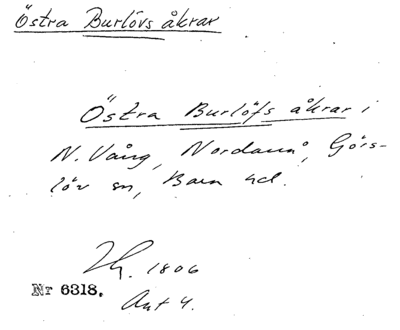 Östra Burlövs åkrar
Östra Burlöfs åkrar i
N. Vång, Nordanå, Görs-
löv sn, Bara hd.
Lh. 1806
Nr 6318.
Akt 4.